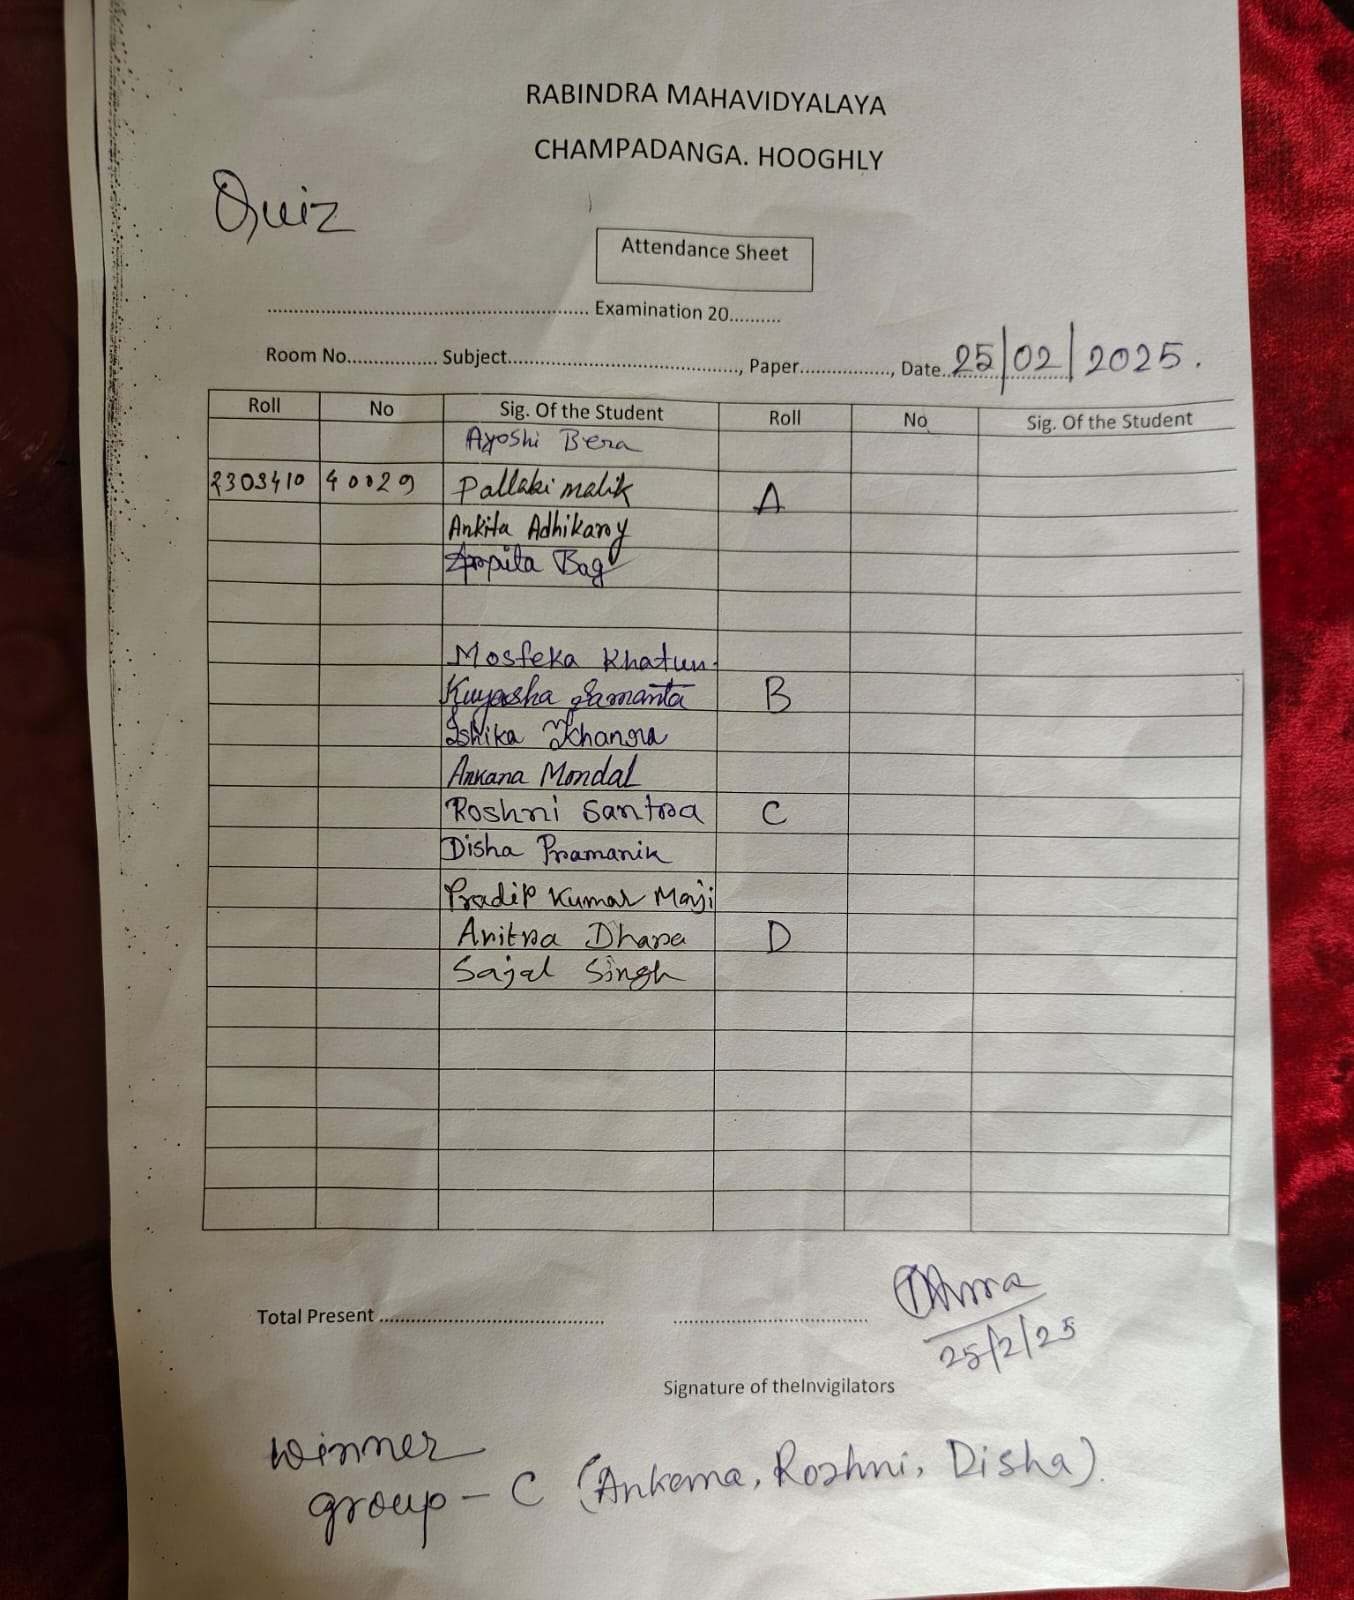 RABINDRA MAHAVIDYALAYA
CHAMPADANGA. HOOGHLY
Quiz
Attendance Sheet
............................................................... Examination 20..........
Room No................ Subject............................................., Paper................., Date.. 25/02/2025.
Roll No Sig. Of the Student Roll No Sig. Of the Student
Ayoshi Bera
2303410 40029 Pallabi malik A
Ankita Adhikary
Arpita Bag
Mosfeka Khatun
Kuyasha Samanta B
Ishika Khanra
Ankana Mondal
Roshni Santra C
Disha Pramanik
Pradip Kumar Maji
Aritra Dhara D
Sajal Singh
Total Present ............................................. ......................................
25/2/25
Signature of theInvigilators
winner
group - C (Ankana, Roshni, Disha).